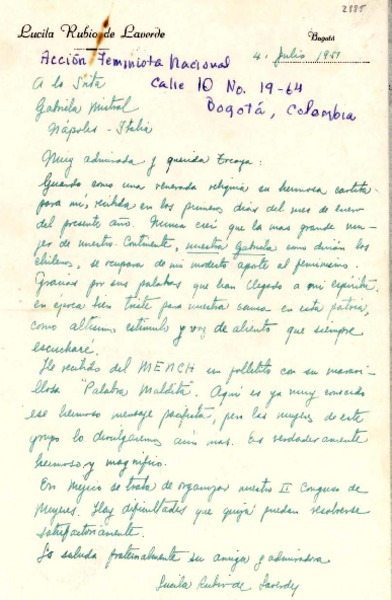 2885
Lucila Rubio de Laverde
Bogotá
Acción Feminista Nacional
4. Julio 1951
Calle 10 No. 19-64
Bogotá, Colombia
A la Srta
Gabriela Mistral
Nápoles - Italia
Muy admirada y querida
Guardo como una venerada reliquia su hermosa cartita
para mí, recibida en los primeros días del mes de enero
del presente año. Nunca creí que la mas grande mu-
jer de nuestro Continente, nuestra Gabriela como dirían los
chilenos, se ocupara de mi modesto aporte al feminismo.
Gracias por sus palabras que han llegado a mi espíritu
en época bien triste para nuestra causa en esta patria,
como altísimo estímulo y voz de aliento que siempre
escucharé.
He recibido del MEMCH un folletito con su maravi-
llosa "Palabra Maldita". Aquí es ya muy conocido
ese hermoso mensaje pacifista, pero las mujeres de este
grupo lo divulgaremos aún mas. Es verdaderamente
hermoso y magnífico.
En Mejico se trata de organizar nuestro II Congreso de
Mujeres. Hay dificultades que quizá puedan resolverse
satisfactoriamente.
La saluda fraternalmente su amiga y admiradora
Lucila Rubio de Laverde